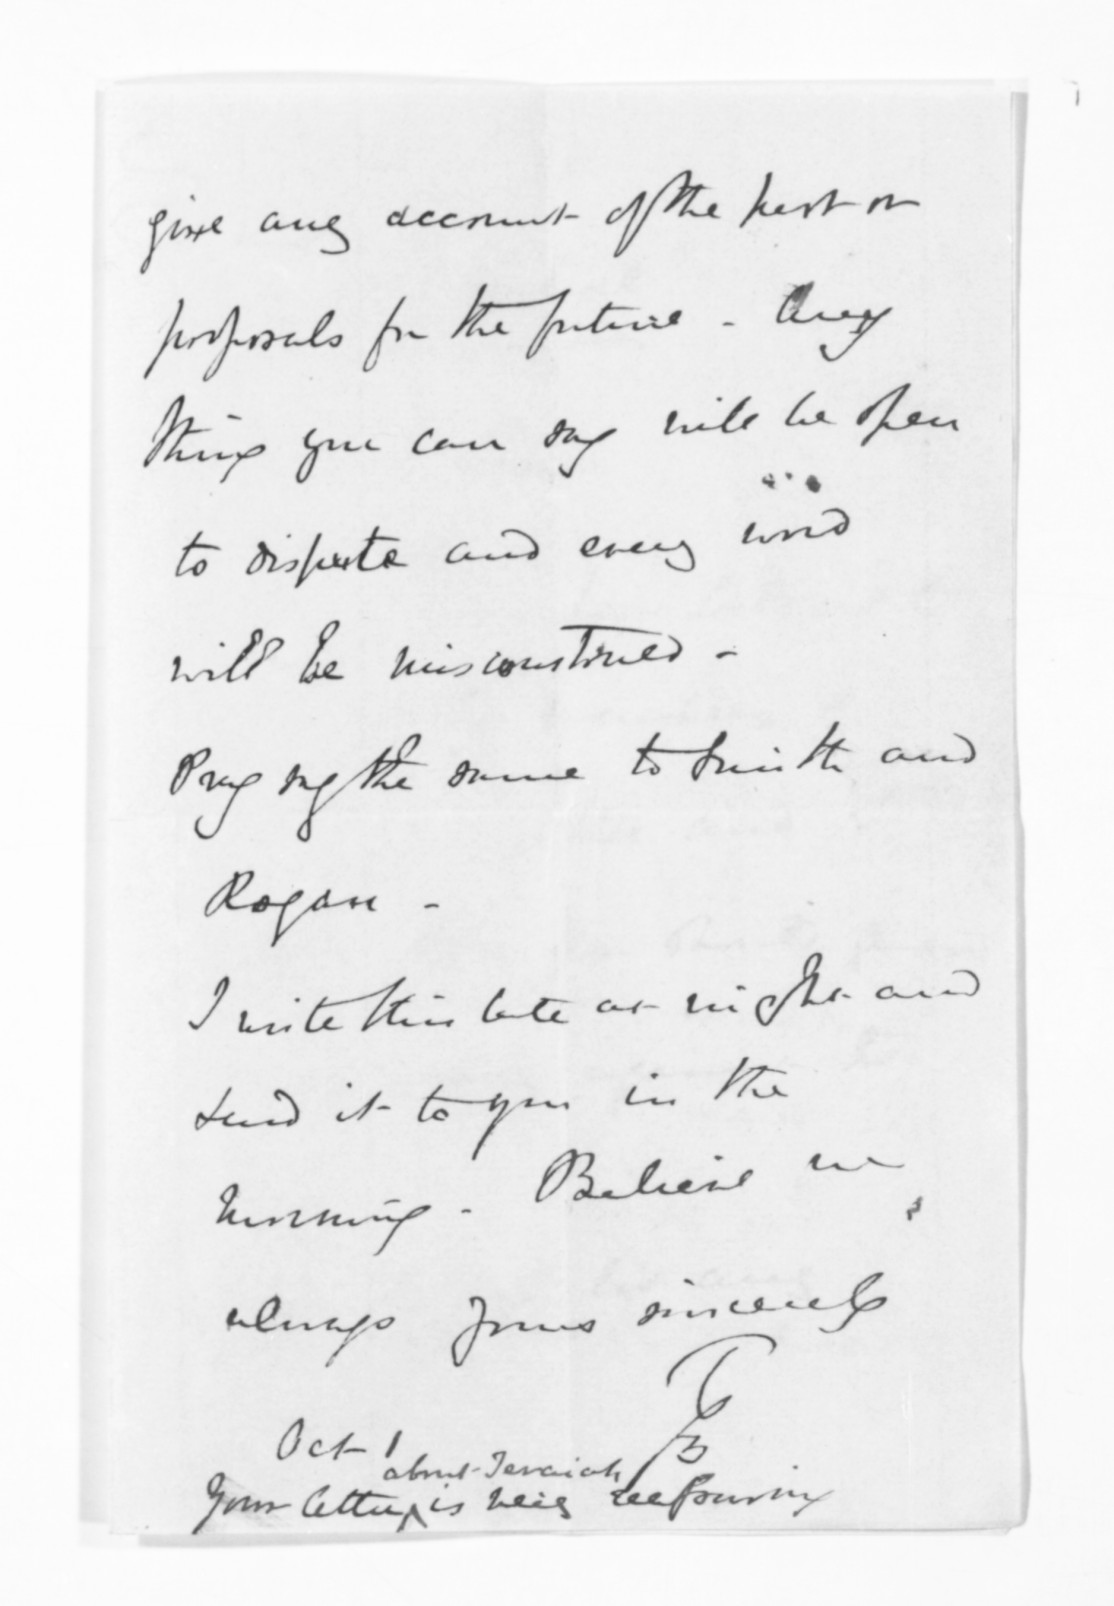 give any account of the past or
proposals for the future - Any
thing you can say will be open
to dispute and every word
will be misconstrued -
Pray say the same to Smith and
Rogan -
I write this late at night and
send it to you in the
morning - Believe me
always yours sincerely
TGB
Oct 1
about Teraiah
Your letter is very